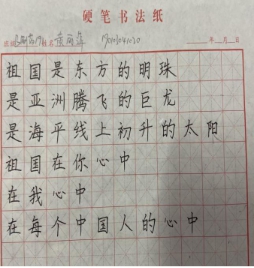 硬笔书法纸
年 月 日
祖国是东方的明珠
是亚洲腾飞的巨龙
是海平线上初升的太阳
祖国在你心中
在我心中
在每个中国人的心中